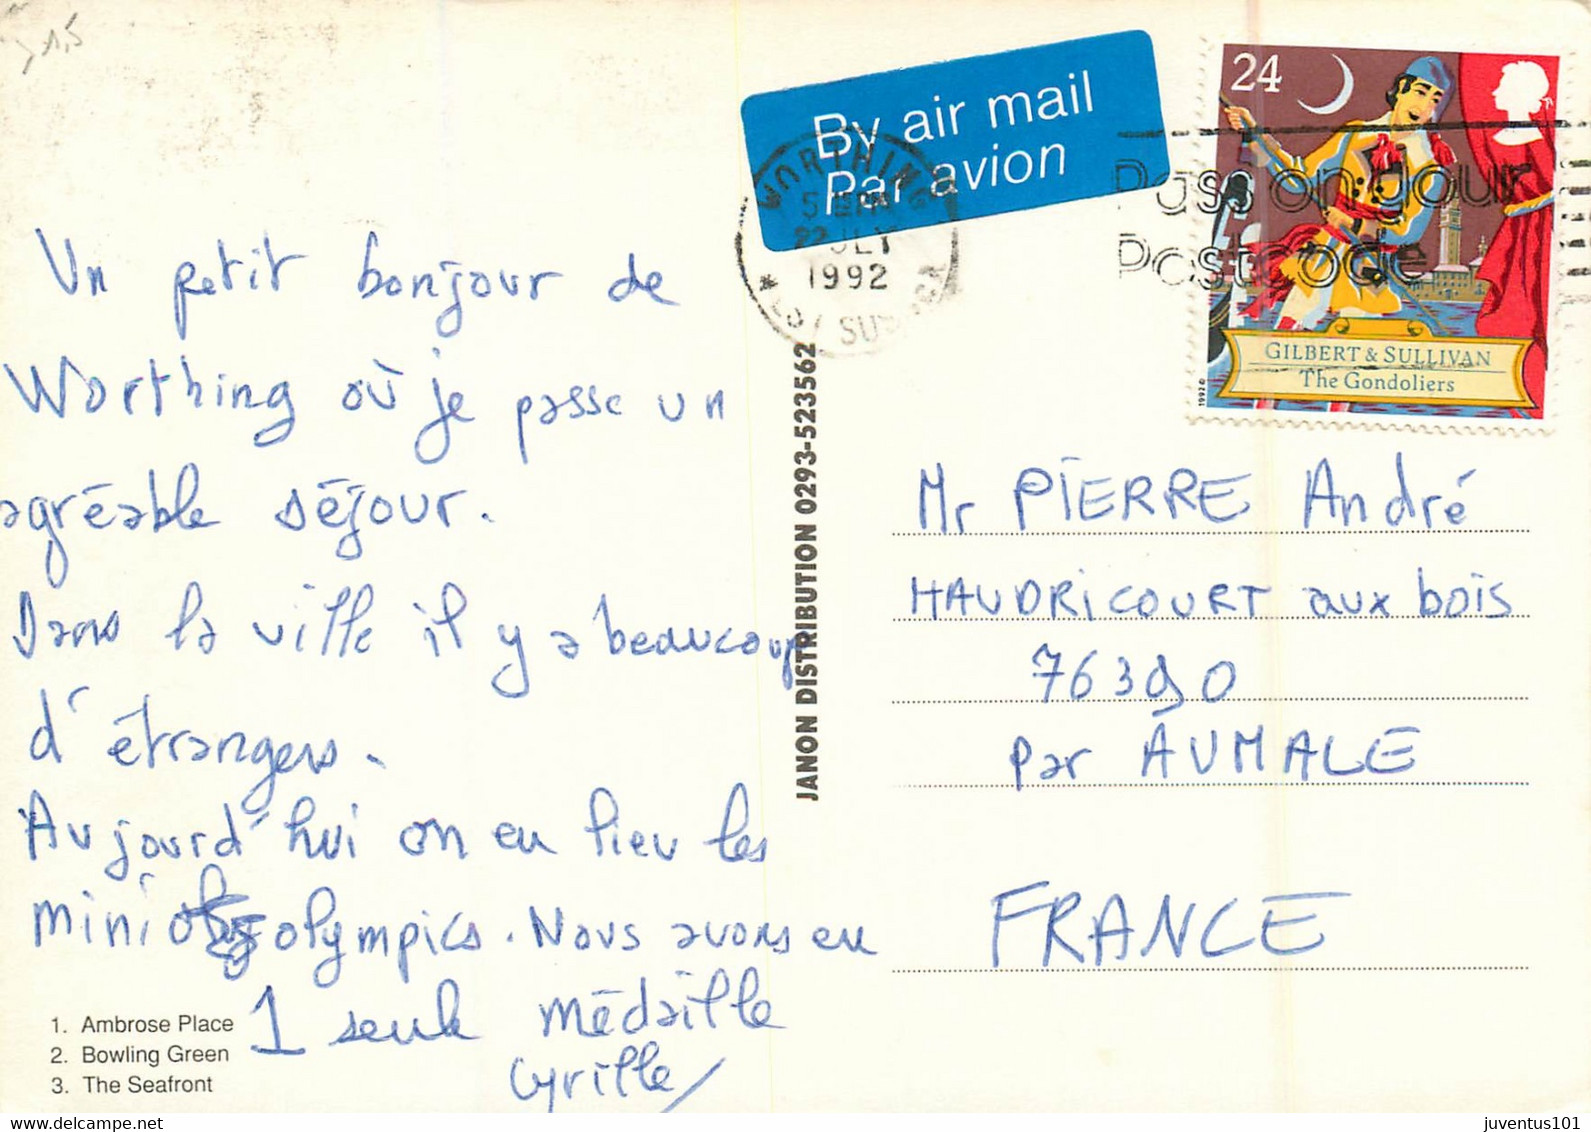 By air mail
Par avion
24
GILBERT & SULLIVAN
The Gondoliers
1992
WORTHING
22 JLY
1992
Pass on your
Postcode
Un petit bonjour de
Worthing où je passe un
agréable séjour.
Dans la ville il y a beaucoup
d'étrangers.
Aujourd'hui on eu lieu les
mini olympics. Nous avons eu
1 seule médaille
Cyrille
1. Ambrose Place
2. Bowling Green
3. The Seafront
JANON DISTRIBUTION 0293-523562
Mr PIERRE André
HAUDRICOURT aux bois
76390
par AUMALE
FRANCE
juventus101